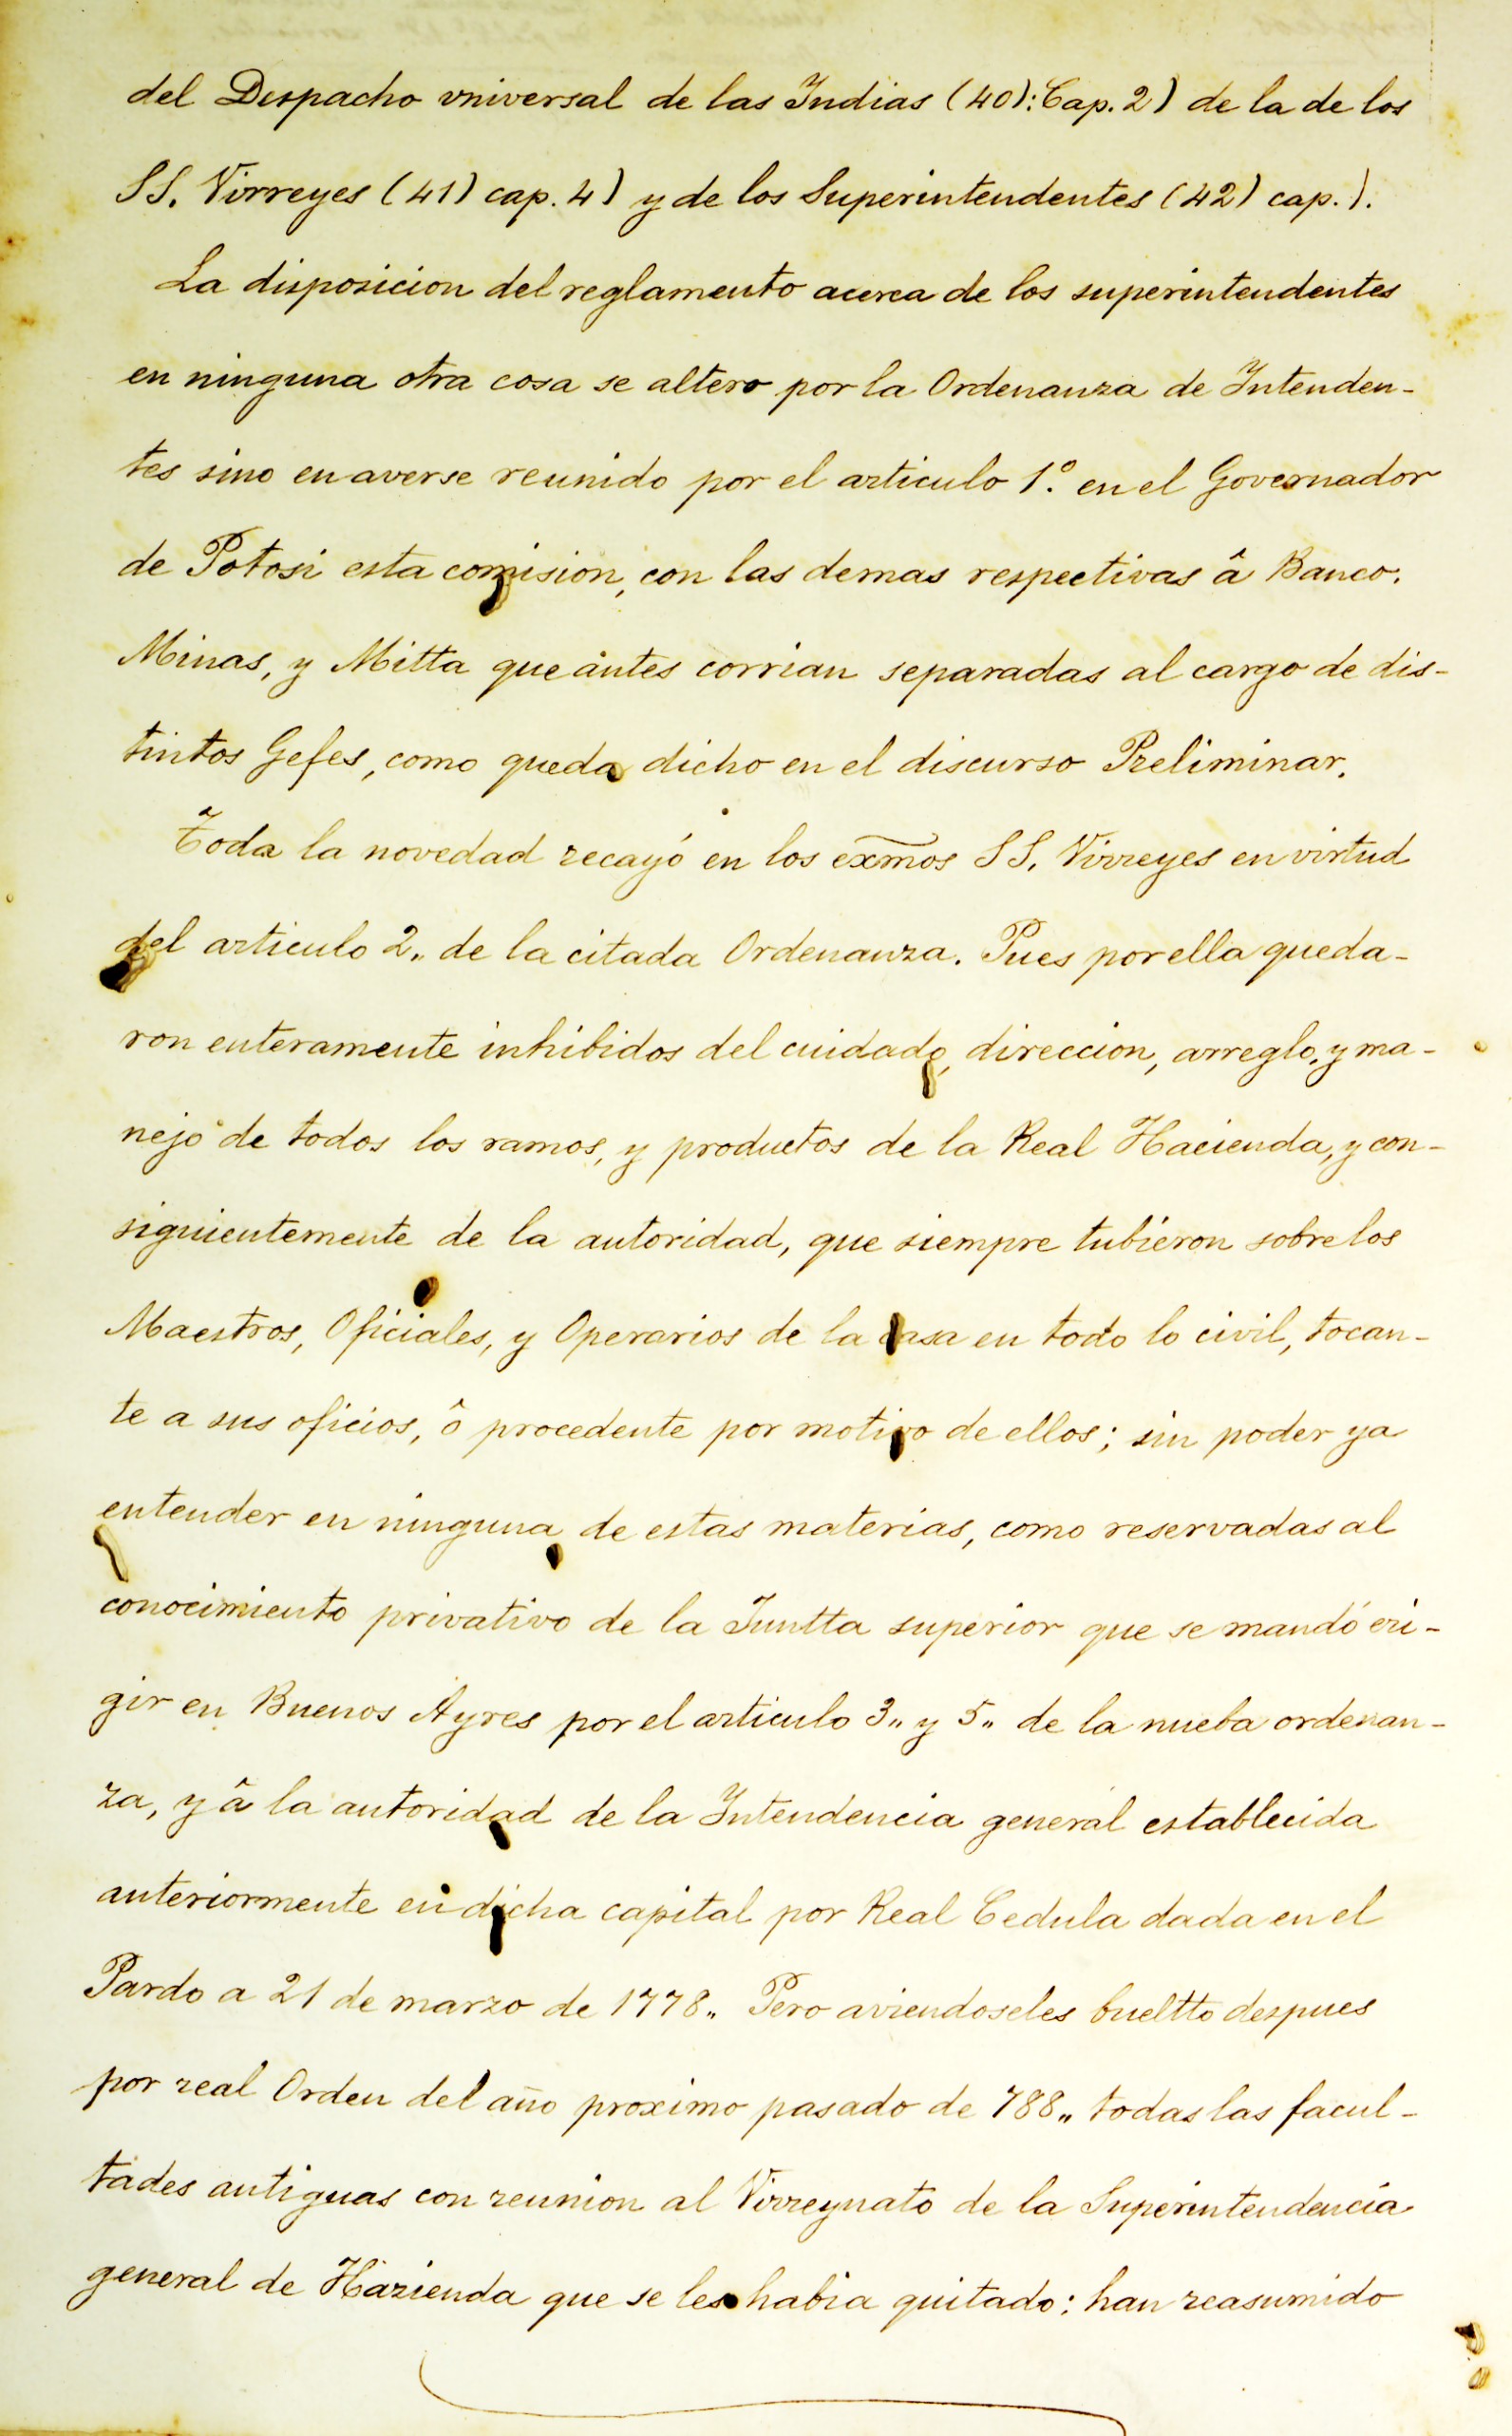 del Despacho vniversal de las Indias (40): Cap. 2) de la de los
SS. Virreyes (41) cap. 4) y de los Superintendentes (42) cap. ).
La disposicion del reglamento acerca de los superintendentes
en ninguna otra cosa se altero por la Ordenanza de Intenden-
tes sino en averse reunido por el articulo 1.º en el Governador
de Potosi esta comision, con las demas respectivas â Banco.
Minas, y Mitta que ântes corrian separadas al cargo de dis-
tintos Gefes, como queda dicho en el discurso Preliminar.
Toda la novedad recayó en los exmos SS. Virreyes en virtud
del articulo 2,, de la citada Ordenanza. Pues por ella queda-
ron enteramente inhibidos del cuidado, direccion, arreglo, y ma-
nejo de todos los ramos, y productos de la Real Hacienda, y con-
siguientemente de la autoridad, que siempre tubieron sobre los
Maestros, Oficiales, y Operarios de la casa en todo lo civil, tocan-
te a sus oficios, ô procedente por motivo de ellos; sin poder ya
entender en ninguna de estas materias, como reservadas al
conocimiento privativo de la Juntta superior que se mandó eri-
gir en Buenos Ayres por el articulo 3,, y 5,, de la nueba ordenan-
za, y â la autoridad de la Intendencia general establecida
anteriormente en dicha capital por Real Cedula dada en el
Pardo a 21 de marzo de 1778,, Pero aviendoseles bueltto despues
por real Orden del año proximo pasado de 788,, todas las facul-
tades antiguas con reunion al Virreynato de la Superintendencia
general de Hazienda que se les habia quitado: han reasumido